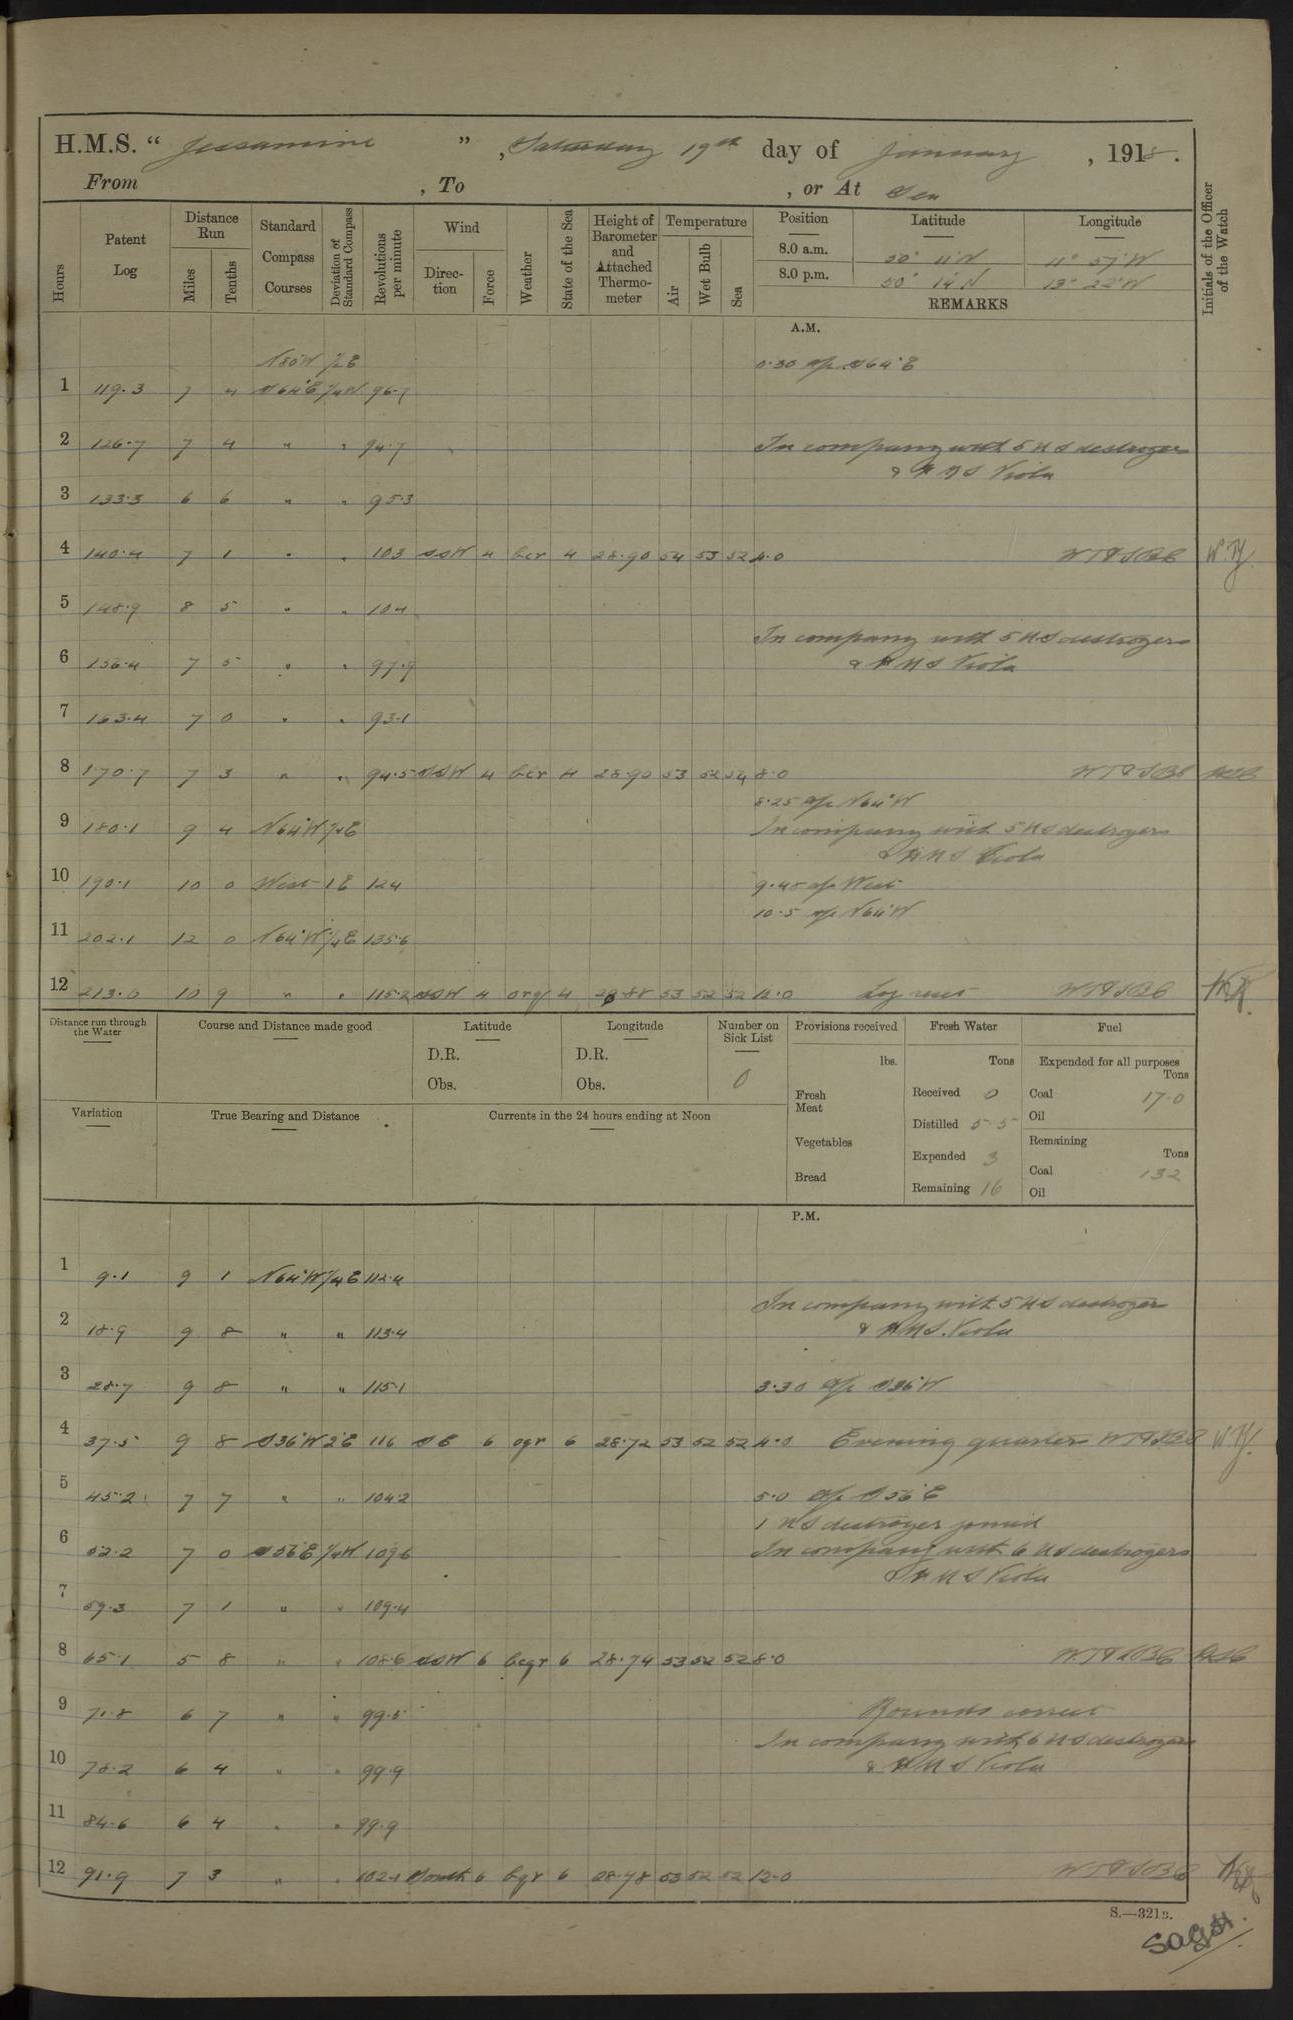 H.M.S. " Jessamine ", Saturday 19th day of January, 1918.
From , To , or At Sea
Hours
Patent Log
Distance Run
Miles
Tenths
Standard Compass Courses
Deviation of Standard Compass
Revolutions per minute
Wind
Direction
Force
Weather
State of the Sea
Height of Barometer and Attached Thermometer
Temperature
Air
Wet Bulb
Sea
Position Latitude Longitude
8.0 a.m. 50° 11'N 11° 57'W
8.0 p.m. 50° 14'N 13° 22'W
REMARKS
Initials of the Officer of the Watch
A.M.
N80W 1/2E 0.30 a/c S64°E
1 119.3 7 4 S64°E 1/4W 96.7
2 126.7 7 4 " " 94.7 In company with 5 US destroyers
& HMS Viola
3 133.3 6 6 " " 95.3
4 140.4 7 1 " " 103 SSW 4 bcr 4 28.90 54 53 52 4.0 WT&SBC
5 148.9 8 5 " " 104
In company with 5 US destroyers
6 156.4 7 5 " " 97.9 & HMS Viola
7 163.4 7 0 " " 93.1
8 170.7 7 3 " " 94.5 SSW 4 bcr 4 28.90 53 52 54 8.0 WT&SBC
8.25 a/c N64°W
9 180.1 9 4 N64°W 1/4E In company with 5 US destroyers
& HMS Viola
10 190.1 10 0 West 1E 124 9.48 a/c West
10.5 a/c N64°W
11 202.1 12 0 N64°W 1/4E 135.6
12 213.0 10 9 " " 115.2 SSW 4 org 4 28.88 53 52 52 12.0 Log reset WT&SBC
Distance run through the Water
Course and Distance made good
Latitude
D.R.
Obs.
Longitude
D.R.
Obs.
Number on Sick List
0
Provisions received
lbs.
Fresh Meat
Vegetables
Bread
Fresh Water
Tons
Received 0
Distilled 5.5
Expended 3
Remaining 16
Fuel
Expended for all purposes
Tons
Coal 17.0
Oil
Remaining
Tons
Coal 132
Oil
Variation
True Bearing and Distance
Currents in the 24 hours ending at Noon
P.M.
1 9.1 9 1 N64°W 1/4E 112.4
In company with 5 US destroyers
2 18.9 9 8 " " 113.4 & HMS. Viola
3 28.7 9 8 " " 115.1 3.30 a/c S36°W
4 37.5 9 8 S36°W 2°E 116 SE 6 ogr 6 28.72 53 52 52 4.0 Evening quarters WT&SBC
5 45.2 7 7 " " 104.2 5.0 a/c S56°E
1 US destroyer joined
6 52.2 7 0 S56°E 1/4W 109.6 In company with 6 US destroyers
& HMS Viola
7 59.3 7 1 " " 109.4
8 65.1 5 8 " " 108.6 SSW 6 bcgr 6 28.74 53 52 52 8.0 WT&SBC
9 71.8 6 7 " " 99.5 Rounds correct
In company with 6 US destroyers
10 78.2 6 4 " " 99.9 & HMS Viola
11 84.6 6 4 " " 99.9
12 91.9 7 3 " " 102.1 South 6 bgr 6 28.78 53 52 52 12.0 WT&SBC
S.—321B.